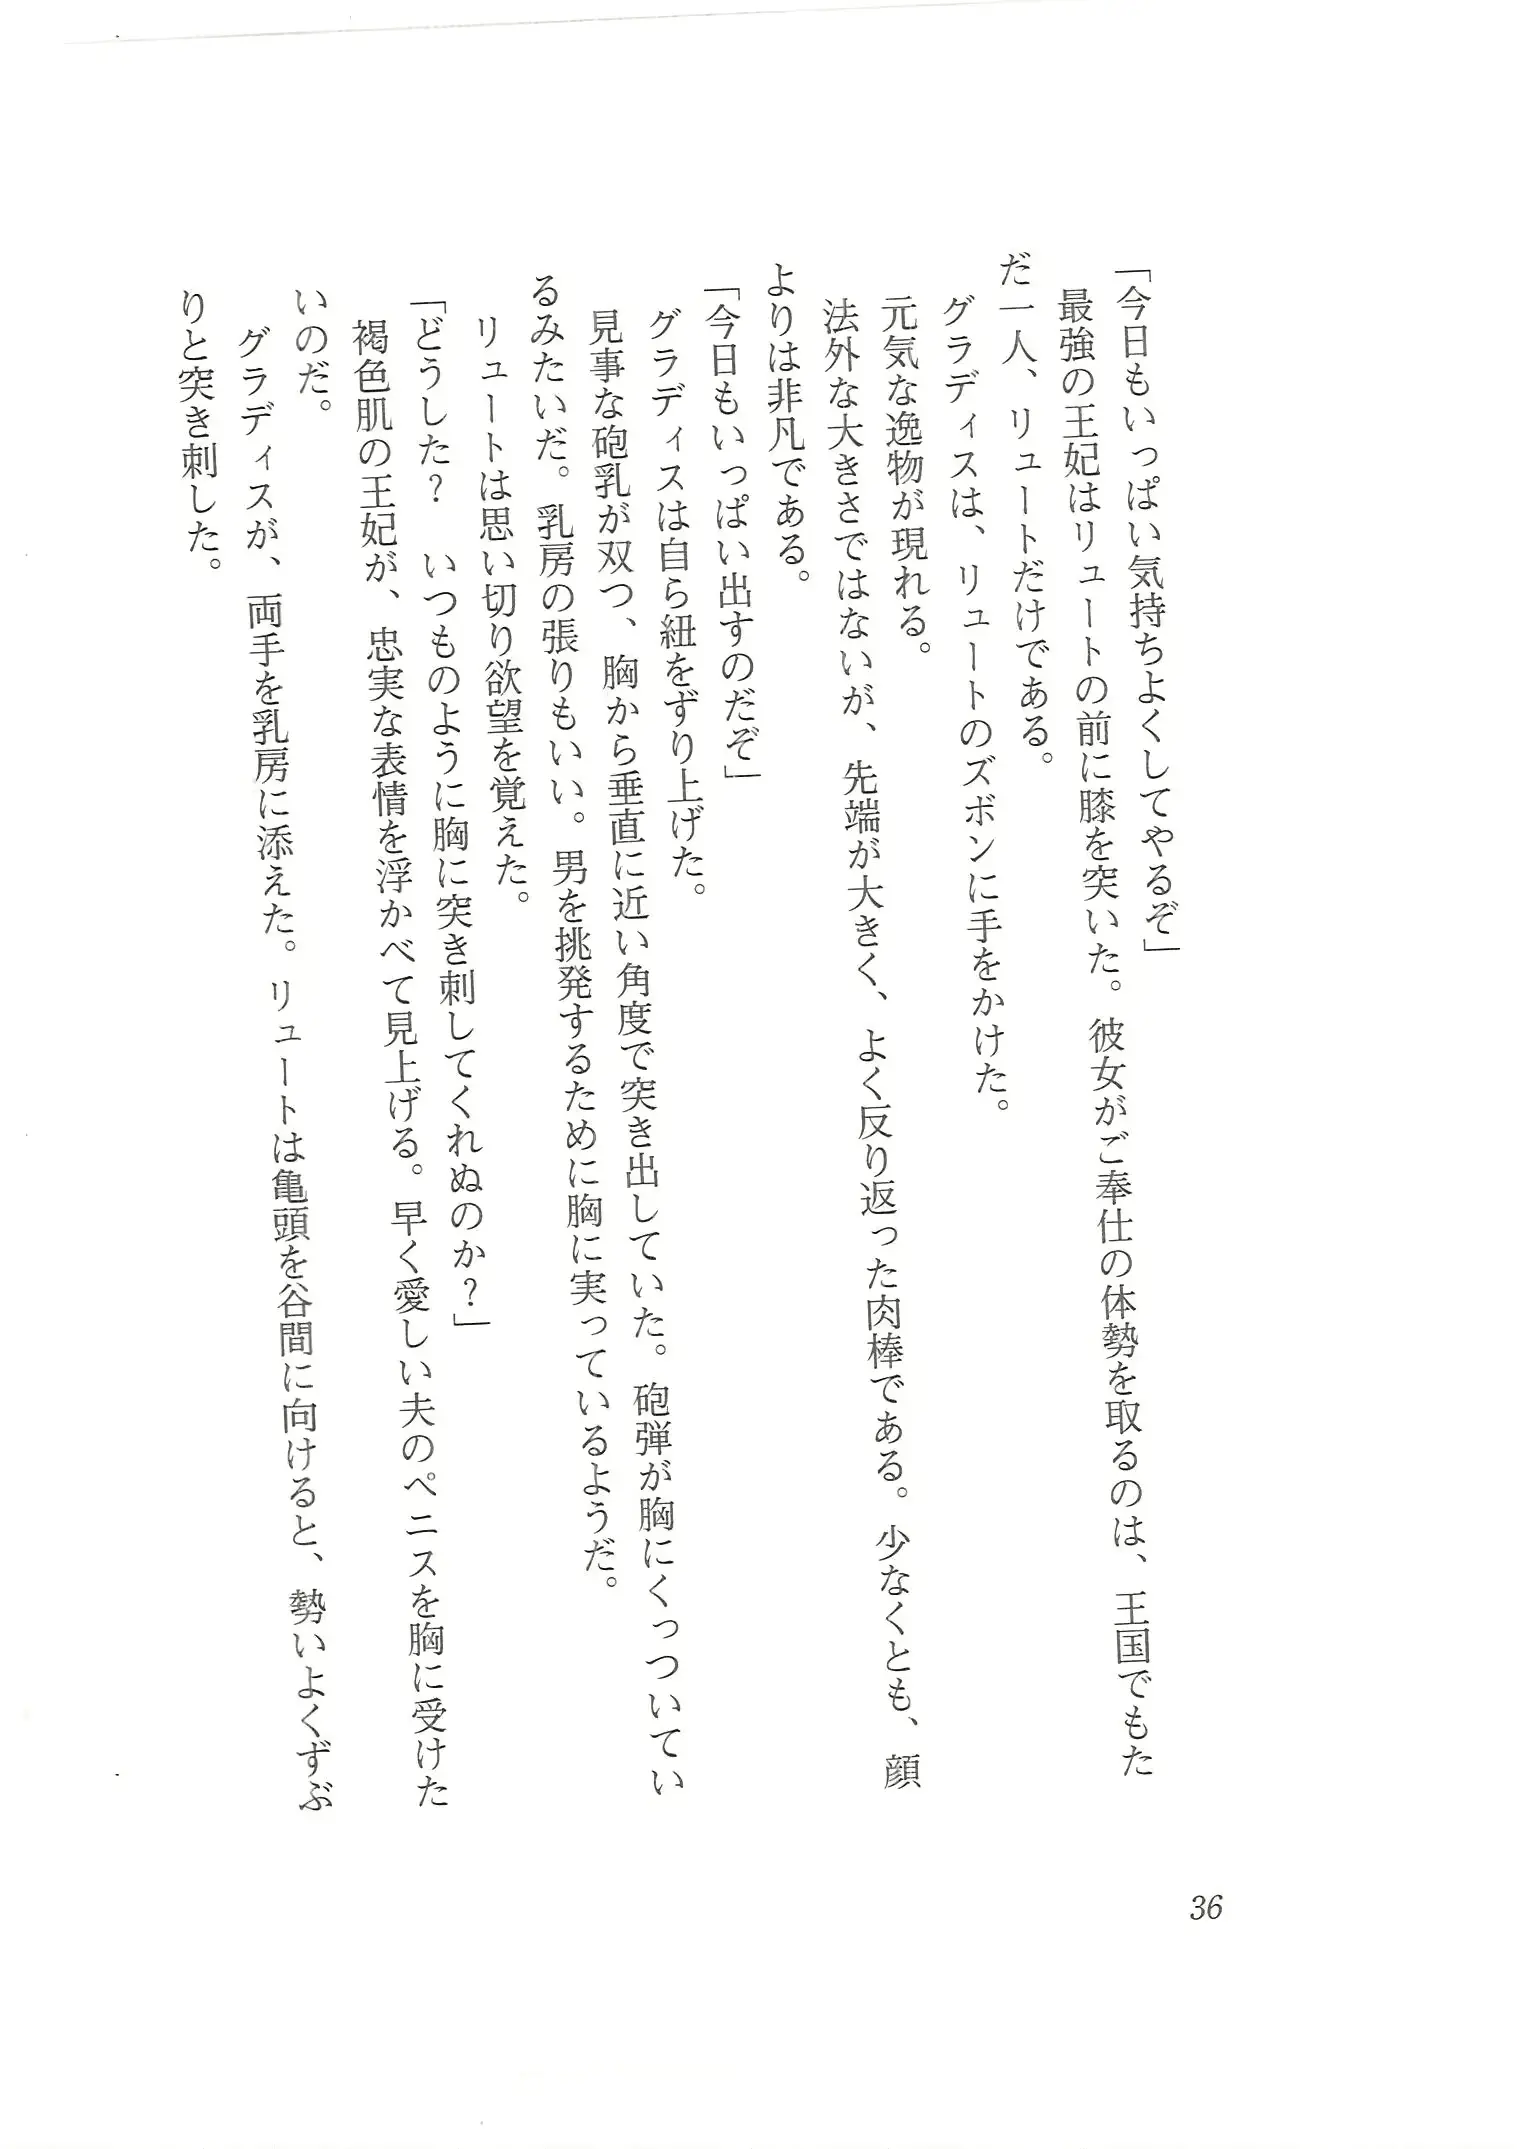 「今日もいっぱい気持ちよくしてやるぞ」
最強の王妃はリュートの前に膝を突いた。彼女がご奉仕の体勢を取るのは、王国でもた
だ一人、リュートだけである。
グラディスは、リュートのズボンに手をかけた。
元気な逸物が現れる。
法外な大きさではないが、先端が大きく、よく反り返った肉棒である。少なくとも、顔
よりは非凡である。
「今日もいっぱい出すのだぞ」
グラディスは自ら紐をずり上げた。
見事な砲乳が双つ、胸から垂直に近い角度で突き出していた。砲弾が胸にくっついてい
るみたいだ。乳房の張りもいい。男を挑発するために胸に実っているようだ。
リュートは思い切り欲望を覚えた。
「どうした？　いつものように胸に突き刺してくれぬのか？」
褐色肌の王妃が、忠実な表情を浮かべて見上げる。早く愛しい夫のペニスを胸に受けた
いのだ。
グラディスが、両手を乳房に添えた。リュートは亀頭を谷間に向けると、勢いよくずぶ
りと突き刺した。
36